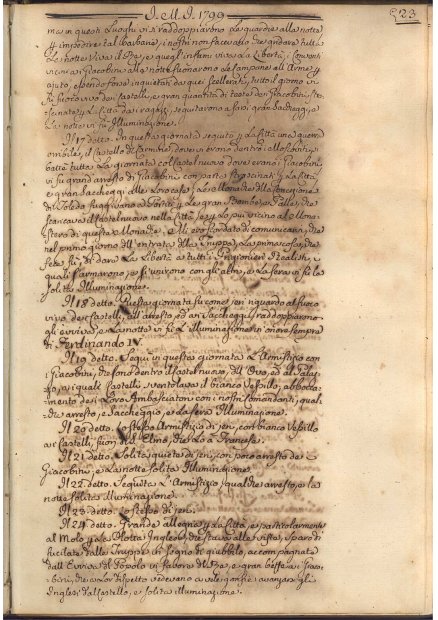 J. M. J. 1799
223
ma in questi Luoghi vi si raddoppiarono Le guardie alla notte
p impedire tal barbarie; i nostri non facevano che gridare tutta
La notte Viva il Re, e quegl'infami viva La Libertà; i
i Giacobini alla notte suonarono le campane all'Arme p
ajuto, essendo sono inquietati da quei scellerati, tutto il giorno vi
fu fuoco vivo dai Castelli, e gran quantità di teste dei Giacobini
p la Città dai ragazzi, seguitarono a farsi gran Saccheggi, e
La notte vi fu Illuminazione.
Il 17 detto. In questa giornata seguitò p La Città una guerra
orribile, il Castello di Carmine, dove vi erano dentro i nostri,
batté tutta La giornata col Castel nuovo dove erano i Giacobini
vi fu grand'arresto di Giacobini con parte strascinati p La Città
e gran Saccheggi alle Loro case; Le Monache della Concezione
di Toledo fuggirono p Le gran Bombe, e Palle, che
scaricava il Castel nuovo nella Città, p Lo più vicino al Mona-
stero di queste Monache. Mi ero scordato di comunicarvi, che
nel primo giorno dell'entrata della Truppa, La prima cosa, che
fece, fu, di dare La Libertà a tutti i Prigionieri Realisti,
quali s'armarono, e si unirono con gli altri, e La sera vi fu la
solita Illuminazione.
Il 18 detto. Questa giornata fu come jeri riguardo al fuoco
vivo dei Castelli, all'arresto, ed ai Saccheggi, raddoppiarono
gli evviva, e La notte vi fu Illuminazione in onore sempre
di Ferdinando IV.
Il 19 detto. Seguì in questa giornata L'Armistizio con
i Giacobini, che sono dentro il Castel nuovo, dell'Ovo, ed al Palaz-
zo, ai quali Castelli sventolava il bianco Vessillo,
di Loro Ambasciatori con i nostri Comandanti, qual-
che arresto, e Saccheggio, e La sera Illuminazione.
Il 20 detto. Lo stesso Armistizio di jeri, con bianco Vessillo
ai Castelli, fuori di S. Elmo, che L'ha i Francesi.
Il 21 detto. Solita quiete di jeri, con poco arresto de
Giacobini, e La notte solita Illuminazione.
Il 22 detto. Seguita L'Armistizio, qualche arresto, e la
notte solita Illuminazione.
Il 23 detto. Lo stesso di jeri.
Il 24 detto. Grande allegria p La Città, e particolarmente
al Molo, p La Flotta Inglese, che stava alle viste, sparo di
fucilate dalle Truppe in segno di giubilo, accompagnate
dall'Evviva di Popolo in favore del Re, e gran beffe ai Giaco-
bini, che a Lor dispetto vedevano a vele gonfie avanzarsi gli
Inglesi al Castello, e solita Illuminazione.